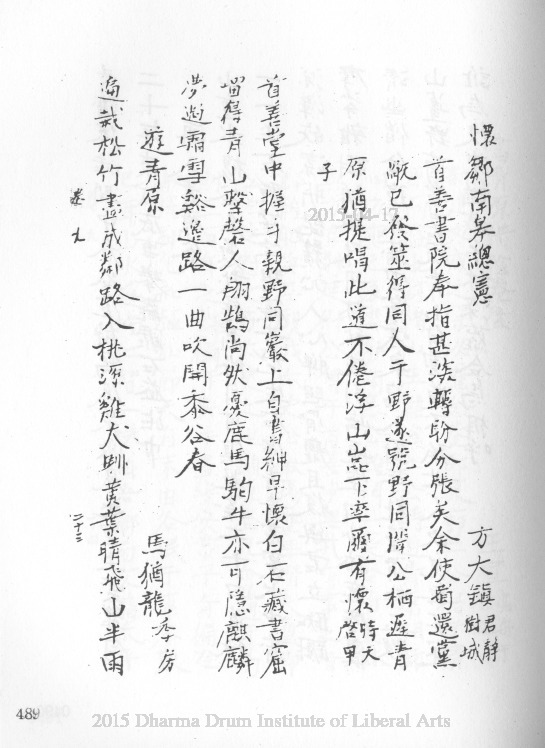 懷鄒南皋總憲
方大鎮君靜樹城
首善書院奉指甚淡轉盼分張矣余使蜀還黨
祝已發筮得同人于野遂號野同聞公栖遲青
原猶提唱此道不倦浮山崑下率爾有懷時天啓甲
子
首善堂中握手親野同巖上自書紳早懷白石藏書窟
留得青山擊磬人翔鵠尚狀憂鹿馬駒牛亦可隱麒麟
夢遊霜雪谿邊路一曲吹開黍谷春
遊青原
馬猶龍季房
遍栽松竹盡成鄰路入桃源雞犬馴黃葉晴飛山半雨
卷九
二十三
489
2015-04-17
2015 Dharma Drum Institute of Liberal Arts